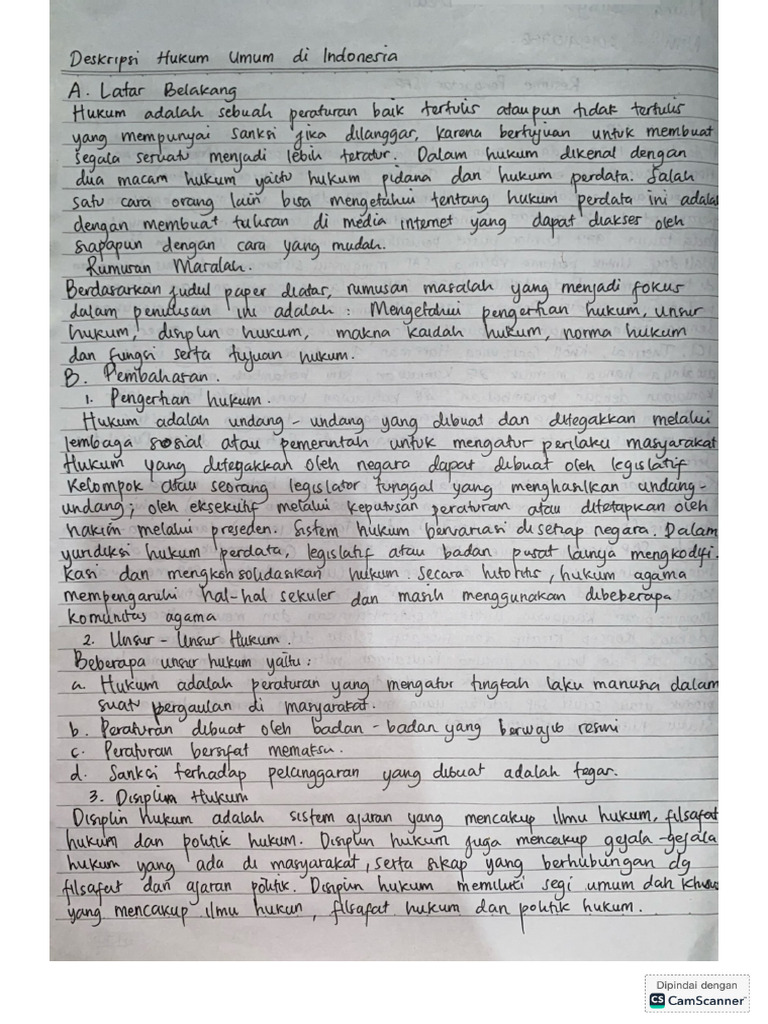 Deskripsi Hukum Umum di Indonesia
A. Latar Belakang
Hukum adalah sebuah peraturan baik tertulis ataupun tidak tertulis
yang mempunyai sanksi jika dilanggar, karena bertujuan untuk membuat
segala sesuatu menjadi lebih teratur. Dalam hukum dikenal dengan
dua macam hukum yaitu hukum pidana dan hukum perdata. Salah
satu cara orang lain bisa mengetahui tentang hukum perdata ini adalah
dengan membuat tulisan di media internet yang dapat diakses oleh
siapapun dengan cara yang mudah.
Rumusan Masalah.
Berdasarkan judul paper diatas, rumusan masalah yang menjadi fokus
dalam penulisan ini adalah : Mengetahui pengertian hukum, unsur
hukum, disiplin hukum, makna kaidah hukum, norma hukum
dan fungsi serta tujuan hukum.
B. Pembahasan.
1. Pengertian hukum.
Hukum adalah undang-undang yang dibuat dan ditegakkan melalui
lembaga sosial atau pemerintah untuk mengatur perilaku masyarakat
Hukum yang ditegakkan oleh negara dapat dibuat oleh legislatif
kelompok atau seorang legislator tunggal yang menghasilkan undang-
undang; oleh eksekutif melalui keputusan peraturan atau ditetapkan oleh
hakim melalui preseden. Sistem hukum bervariasi disetiap negara. Dalam
yuridiksi hukum perdata, legislatif atau badan pusat lainya mengkodifi-
kasi dan mengkonsolidasikan hukum. Secara historitis, hukum agama
mempengaruhi hal-hal sekuler dan masih menggunakan dibeberapa
komunitas agama
2. Unsur - Unsur Hukum.
Beberapa unsur hukum yaitu :
a. Hukum adalah peraturan yang mengatur tingkah laku manusia dalam
suatu pergaulan di masyarakat.
b. Peraturan dibuat oleh badan-badan yang berwajib resmi
c. Peraturan bersifat memaksa.
d. Sanksi terhadap pelanggaran yang dibuat adalah tegas.
3. Disiplin Hukum
Disiplin hukum adalah sistem ajaran yang mencakup ilmu hukum, filsafat
hukum dan politik hukum. Disiplin hukum juga mencakup gejala-gejala
hukum yang ada di masyarakat, serta sikap yang berhubungan dg
filsafat dan ajaran politik. Disipin hukum memiliki segi umum dan khusus
yang mencakup ilmu hukun, filsafat hukum dan politik hukum.
Dipindai dengan
CS CamScanner